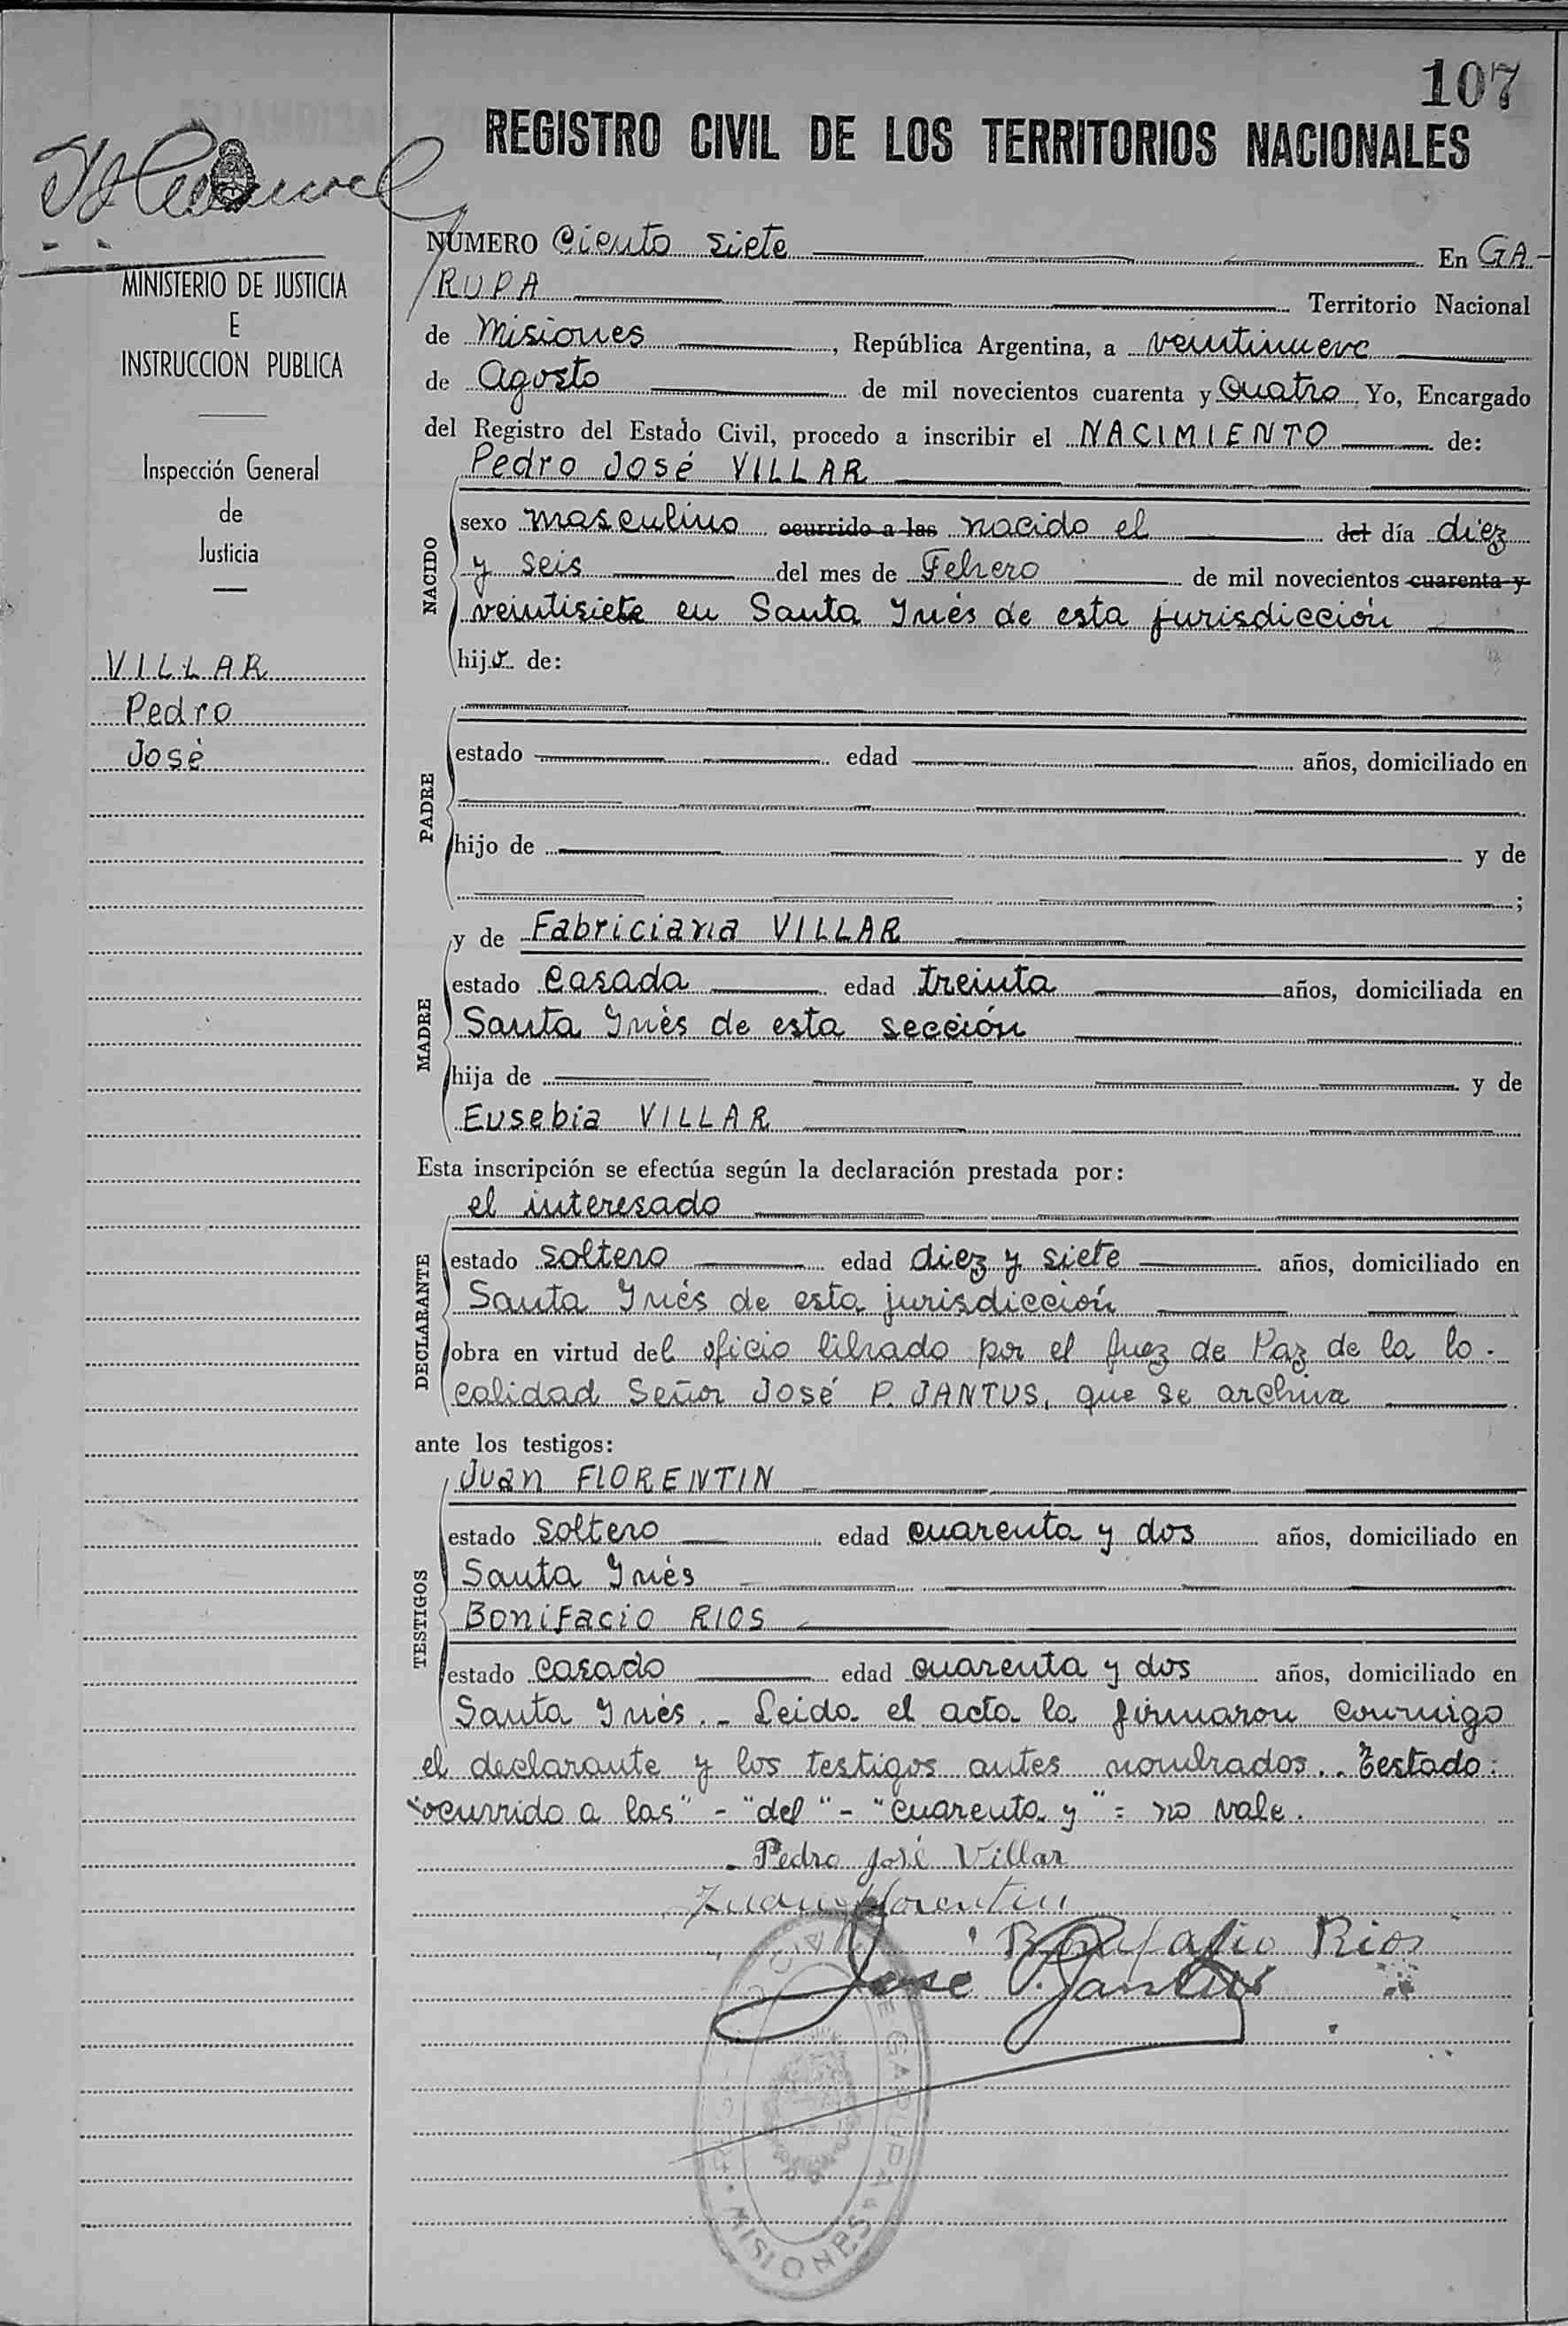 107
REGISTRO CIVIL DE LOS TERRITORIOS NACIONALES
MINISTERIO DE JUSTICIA
E
INSTRUCCION PUBLICA
Inspección General
de
Justicia
VILLAR
Pedro
José
NUMERO Ciento siete En GA-
RUPA Territorio Nacional
de Misiones, República Argentina, a veintinueve
de Agosto de mil novecientos cuarenta y Cuatro Yo, Encargado
del Registro del Estado Civil, procedo a inscribir el NACIMIENTO de:
Pedro José VILLAR
NACIDO
sexo masculino ocurrido a las nacido el del día diez
y seis del mes de Febrero de mil novecientos cuarenta y
veintisiete en Santa Inés de esta jurisdicción
hijo de:
PADRE
estado edad años, domiciliado en
hijo de y de
;
MADRE
y de Fabriciana VILLAR
estado Casada edad treinta años, domiciliada en
Santa Inés de esta sección
hija de y de
Eusebia VILLAR
Esta inscripción se efectúa según la declaración prestada por:
DECLARANTE
el interesado
estado soltero edad diez y siete años, domiciliado en
Santa Inés de esta jurisdicción
obra en virtud del oficio librado por el Juez de Paz de la lo-
calidad Señor José P. JANTUS, que se archiva
ante los testigos:
TESTIGOS
Juan FLORENTIN
estado soltero edad cuarenta y dos años, domiciliado en
Santa Inés
Bonifacio RIOS
estado Casado edad cuarenta y dos años, domiciliado en
Santa Inés.- Leida el acta la firmaron conmigo
el declarante y los testigos antes nombrados.. Testado:
"ocurrido a las" - "del" - "cuarenta y" = no vale.
Pedro José Villar
Juan Florentin
Bonifacio Rios
Jose P. Jantus
DE GARUPA
MISIONES